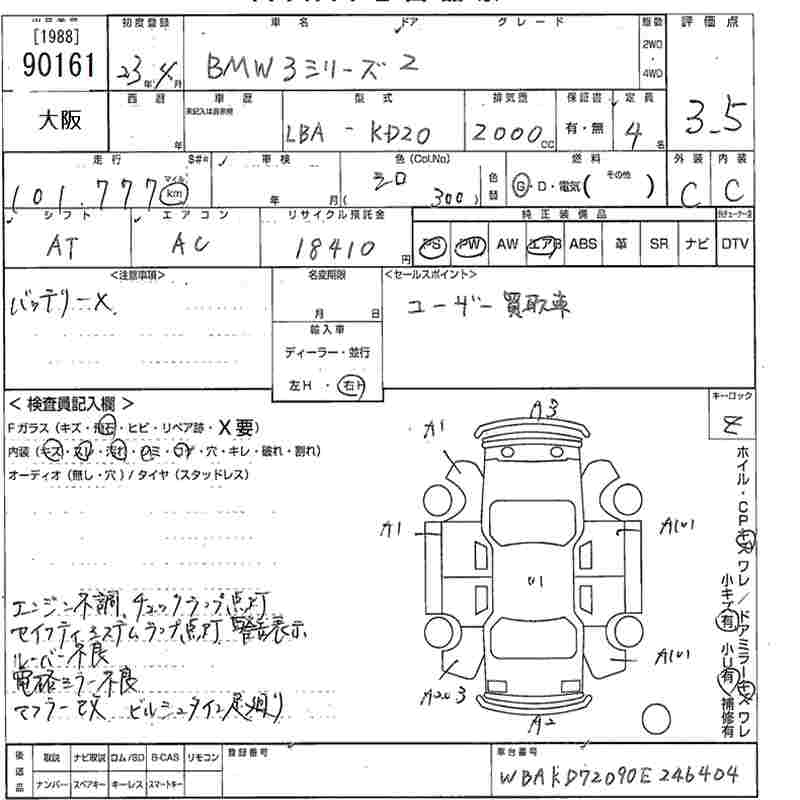 [1988]
90161
初度登録
車名
ドア
グレード
駆動
評価点
23年4月
BMW 3シリーズ 2
2WD
・
4WD
3.5
大阪
西暦
車歴
型式
排気量
保証書
定員
年
未記入は自家用
LBA - KD20
2000cc
有・無
4名
走行
S#*
車検
色(Col.No)
色替
燃料
その他
外装
内装
101,777
マイル
km
年 月
シロ
300
G・D・電気( )
C
C
シフト
エアコン
リサイクル預託金
純正装備品
AT
AC
18410円
PS
PW
AW
エアB
ABS
革
SR
ナビ
DTV
<注意事項>
名変期限
<セールスポイント>
バッテリーX
月 日
ユーザー買取車
輸入車
ディーラー・並行
左H・右H
<検査員記入欄>
キーロック
Fガラス(キズ・飛石・ヒビ・リペア跡・X要)
内装(キズ・スレ・汚れ・シミ・コゲ・穴・キレ・破れ・割れ)
オーディオ(無し・穴)/タイヤ(スタッドレス)
A3
A1
A1
A1U1
U1
A1U1
A2U3
A2
ホイル・CPキズワレ/ドアミラーキズワレ
小キズ有 小U有 補修有
エンジン不調、チェックランプ点灯
セイフティシステムランプ点灯 警告表示
ルーバー不良
電格ミラー不良
マフラー改 ビルシュタイン足廻り
後送品
取説
ナビ取説
ロム/SD
B-CAS
リモコン
ナンバー
スペアキー
キーレス
スマートキー
登録番号
車台番号
WBAKD72090E246404